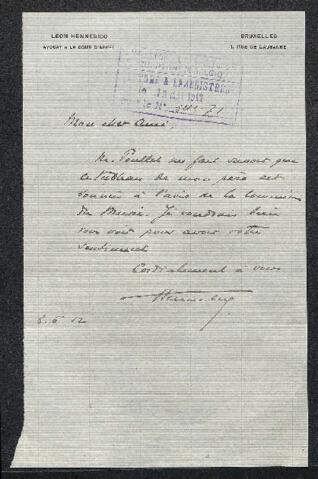 LÉON HENNEBICQ BRUXELLES
AVOCAT A LA COUR D'APPEL 1, RUE DE LAUSANNE
Mon cher Ami,
M. Poullet me fait savoir que
le tableau de mon père est
soumis à l'avis de la Commission
du Musée. Je voudrais bien
vous voir pour avoir votre
sentiment
Cordialement à vous
8.6.12